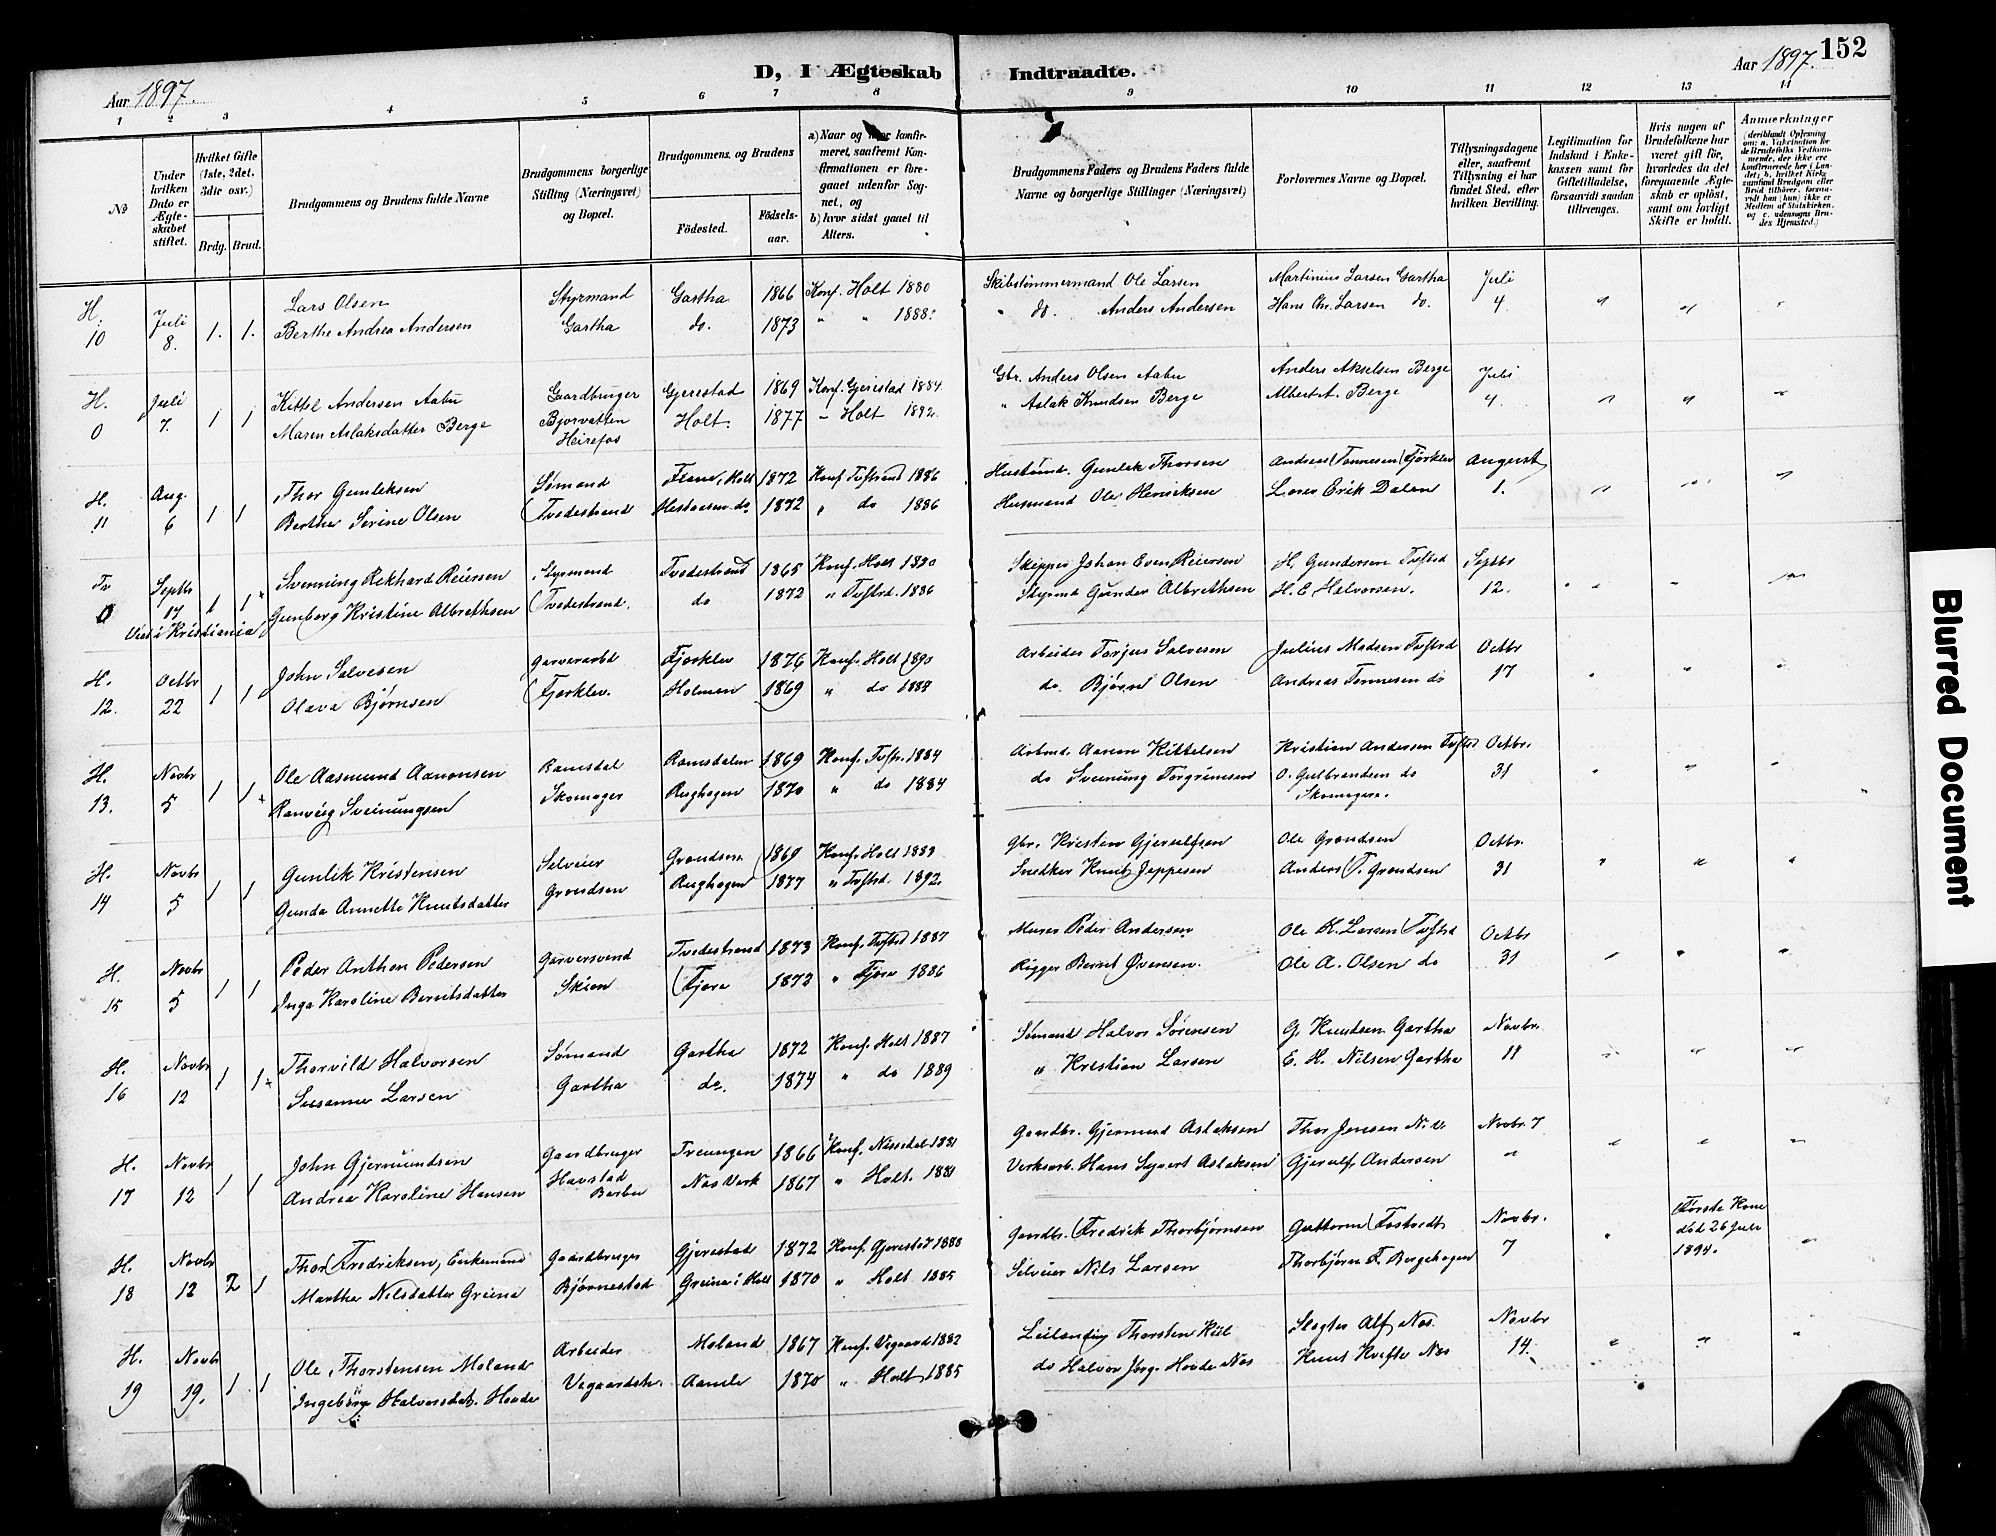 152
D, I Ægteskab Indtraadte.
Aar 1897.
Aar 1897.
1 2 3 4 5 6 7 8 9 10 11 12 13 14
No
Under hvilken Dato er Ægteskabet stiftet.
Hvilket Gifte (1ste, 2det, 3die osv.)
Brdg. Brud.
Brudgommens og Brudens fulde Navne
Brudgommens borgerlige Stilling (Næringsvei) og Bopæl.
Brudgommens og Brudens
Födested. Födselsaar.
a) Naar og hvor konfirmeret, saafremt Konfirmationen er foregaaet udenfor Sognet, og
b) hvor sidst gaaet til Alters.
Brudgommens Faders og Brudens Faders fulde Navne og borgerlige Stillinger (Næringsvei)
Forlovernes Navne og Bopæl.
Tillysningsdagene eller, saafremt Tillysning ei har fundet Sted, efter hvilken Bevilling.
Legitimation for Indskud i Enkekassen samt for Giftetilladelse, forsaavidt saadan tiltrænges.
Hvis nogen af Brudefolkene har været gift før, hvorledes da det foregaaende Ægteskab er oplöst, samt om lovligt Skifte er holdt.
Anmerkninger
H. 10 Juli 8. 1. 1. Lars Olsen Styrmand Gartha 1866 Konf. Holt 1880 Skibstömmermand Ole Larsen Martinius Larsen Gartha Juli 4.
Berthe Andrea Andersen Gartha do. 1873 " " 1888. " do. Anders Andersen Hans Chr. Larsen do.
H. 0 Juli 7. 1 1 Kittel Andersen Aabu Gaardbruger Gjerestad 1869 Konf. Gjerestad 1884. Gbr. Anders Olsen Aabu Anders Akselsen Berge Juli 4.
Maren Aslaksdatter Berge Bjorvatten Heirefos Holt. 1877 " Holt 1892. " Aslak Knudsen Berge Albert A. Berge
H. 11 Aug. 6 1 1 Thor Gunleksen Sømand Holt 1872 Konf. 1886 Gunlek Thorsen Andreas Tønnesen Fjørklev August 1.
Berthe Serine Olsen Tvedestrand do 1872 " do 1886 Husmand Ole Henriksen Erik Dalen
Septbr 17 1 1 Svenning Rekhard Reiersen Styrmand Tvedestrand 1865 Konf. Holt 1880 Skipper Johan Even Reiersen H. Gundersen Tvstrd Septbr 12.
Viet i Kristiania Gunborg Kristine Albrethsen Tvedestrand. do 1872 " Tvstrd. 1886 Styrmd Gunder Albrethsen H. E. Halvorsen.
H. 12. Octbr 22 1 1 John Salvesen Garverarbd Fjørklev 1876 Konf. Holt 1890 Arbeider Torjus Salvesen Julius Madsen Tvstrd Octbr 17
Olava Bjørnsen Fjørklev. Holmen 1869 " do do. Bjørn Olsen Andreas Tønnesen do
H. 13. Novbr 5 1 1 Ole Aasmund Aanonsen Ramsdal Ramsdalen 1869 Konf. Tvstr. 1884 Arbmd. Aanon Kittelsen Kristian Andersen Tvstrd Octbr. 31
Ranveig Sveinungsen Skomager Rughagen 1870 " do 1884 do Sveinung Torgrimsen O. Gulbrandsen do
Skomagere.
H. 14 Novbr 5 1 1 Gunlik Kristensen Selveier Grøndsen 1869 Konf. Holt Gbr. Kristen Gjerulfsen Ole Grøndsen Octbr. 31
Gunda Annette Knutsdatter Grøndsen Rughagen 1877 " Tvstrd. 1892. Snedker Knut Jeppesen Anders T. Grøndsen
H. 15 Novbr 5 1 1 Peder Anthon Pedersen Garversvend Tvedestrand 1873 Konf. Tvstrd 1887 Murer Peder Andersen Ole K. Larsen Tvstrd Octbr 31
Inga Karoline Berntsdatter Skien Fjøre 1872 " Fjøre 1886 Rigger Bernt Øvensen. Ole A. Olsen do
H. 16 Novbr 12 1 1 Thorvild Halvorsen Sømand Gartha 1872 Konf. Holt 1887 Sømand Halvor Sørensen G. Knutsen Gartha Novbr. 11
Susanne Larsen Gartha do. 1874 " do 1889 " Kristian Larsen E. H. Nilsen Gartha
H. 17 Novbr 12 1 1 John Gjermundsen Gaardbruger Treungen 1866 Konf. Nissedal 1881 Gaardbr. Gjermund Aslaksen Thor Jensen Novbr. 7
Andrea Karoline Hansen Havstad Barbu Næs Værk 1867 " Holt. 1881 Verksarb. Hans Syvert Aslaksen Gjerulf Andersen "
H. 18 Novbr 12 2 1 Thor Fredriksen, Enkemand Gaardbruger Gjerestad 1872 Konf. Gjerestad 1888 Gaardbr. Fredrik Thorbjørnsen Guthorm Fostvedt Novbr. 7 Første Kone död 26 Juli
Martha Nilsdatter Greina Bjørnestad Greina i Holt 1870 " Holt 1885 Selveier Nils Larsen Thorbjørn F. Bergehagen
H. 19 Novbr 19. 1 1 Ole Thorstensen Moland Arbeider Moland 1867 Konf. Vegaard 1882 Leilænding Thorsten Alf Næs. Novbr 14.
Ingeborg Halvorsdat. Hovde Vegaardsh. 1870 " Holt 1885 do Halvor Hovde Næs Knut Kvifte Næs
Blurred Document